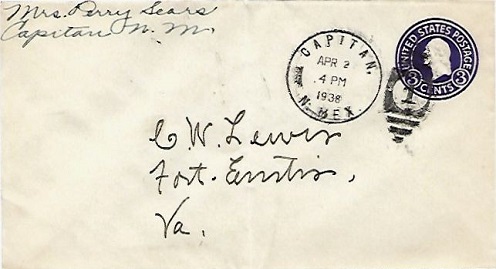 Mrs. Perry Sears
Capitan N. M.
CAPITAN,
APR 2
4 PM
1938
N. MEX.
1
UNITED STATES POSTAGE
3 CENTS 3
C W. Lewis
Fort. Eustis,
Va.